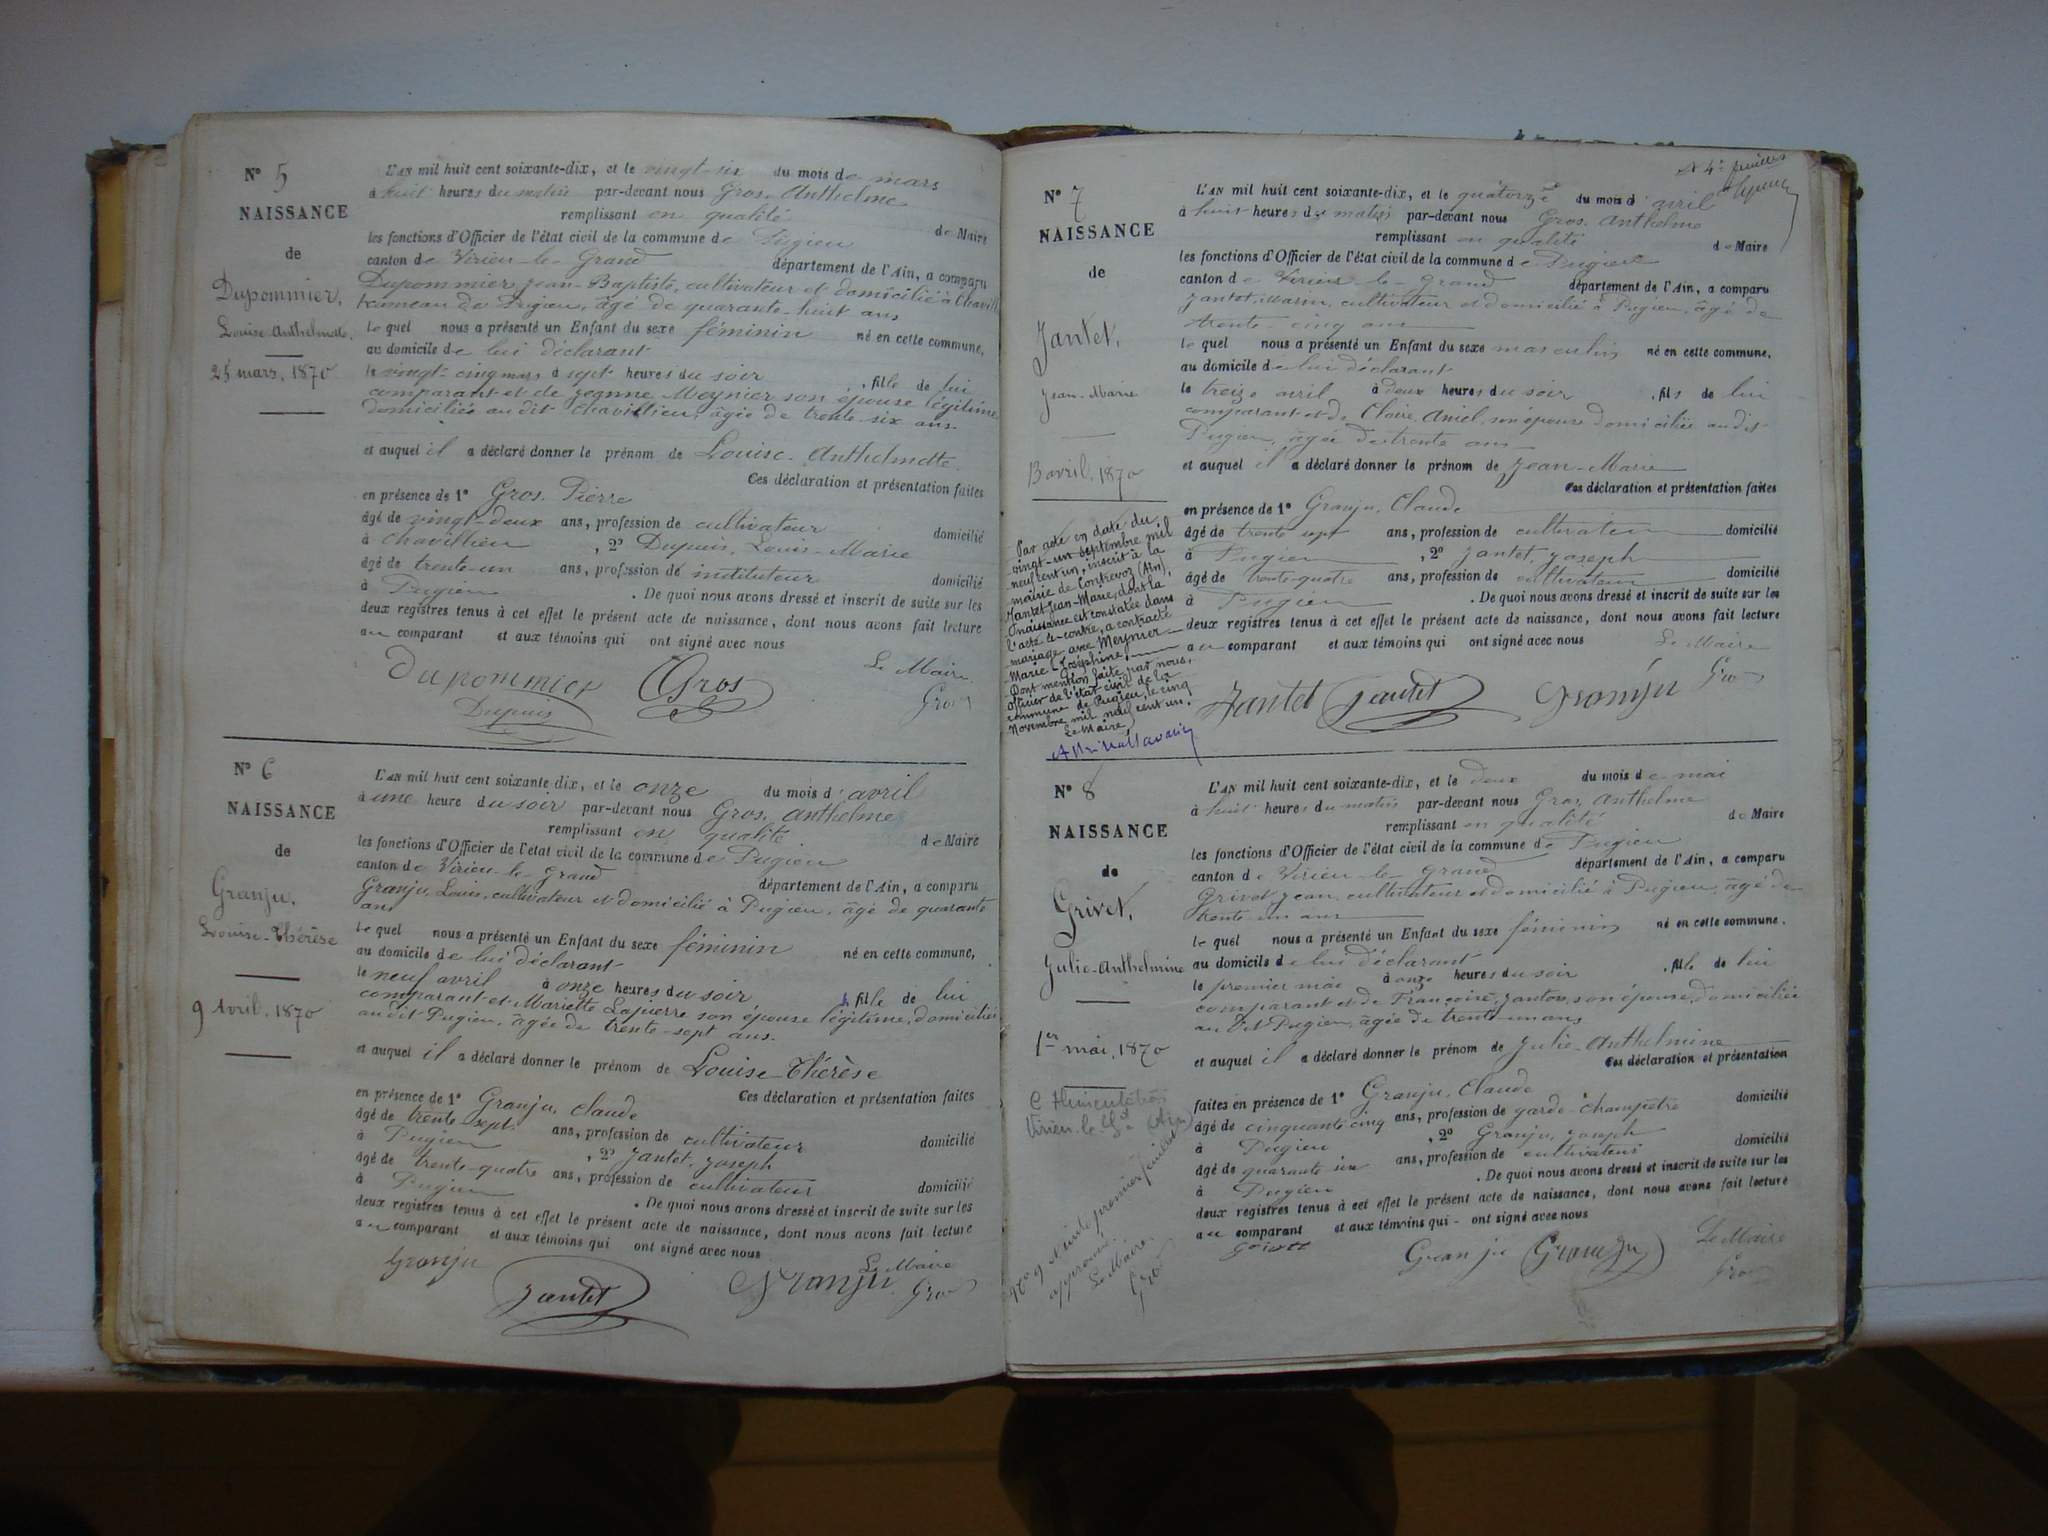 N° 5
NAISSANCE
de
Dupommier,
Louise-Anthelmette.
25 mars, 1870
L'AN mil huit cent soixante-dix, et le vingt-six du mois de mars
à huit heures du matin par-devant nous Gros, Anthelme
remplissant en qualité de Maire
les fonctions d'Officier de l'état civil de la commune de Pugieu
canton de Virieu-le-Grand département de l'Ain, a comparu
Dupommier, Jean-Baptiste, cultivateur et domicilié à Chavill
hameau de Pugieu, âgé de quarante-huit ans
le quel nous a présenté un Enfant du sexe féminin né en cette commune,
au domicile de lui déclarant
le vingt-cinq mars à sept heures du soir , fille de lui
comparant et de Jeanne Meynier son épouse légitime
domiciliés au dit Chavillieu, âgée de trente-six ans.
et auquel il a déclaré donner le prénom de Louise-Anthelmette.
Ces déclaration et présentation faites
en présence de 1° Gros, Pierre
âgé de vingt-deux ans, profession de cultivateur domicilié
à Chavillieu , 2° Dupuis, Louis-Marie
âgé de trente-un ans, profession de instituteur domicilié
à Pugieu . De quoi nous avons dressé et inscrit de suite sur les
deux registres tenus à cet effet le présent acte de naissance, dont nous avons fait lecture
au comparant et aux témoins qui ont signé avec nous
Le Maire
Dupommier Gros Gros
Dupuis
N° 6
NAISSANCE
de
Granju,
Louise-Thérèse
9 Avril, 1870
L'AN mil huit cent soixante-dix, et le onze du mois d'avril
à une heure du soir par-devant nous Gros, Anthelme
remplissant en qualité de Maire
les fonctions d'Officier de l'état civil de la commune de Pugieu
canton de Virieu-le-Grand département de l'Ain, a comparu
Granju, Louis, cultivateur et domicilié à Pugieu, âgé de quarante
ans
le quel nous a présenté un Enfant du sexe féminin né en cette commune,
au domicile de lui déclarant
le neuf avril à onze heures du soir, fille de lui
comparant et Mariette Lapierre son épouse légitime, domiciliés
au dit Pugieu, âgée de trente-sept ans.
et auquel il a déclaré donner le prénom de Louise-Thérèse
Ces déclaration et présentation faites
en présence de 1° Granju, Claude
âgé de trente-sept ans, profession de cultivateur domicilié
à Pugieu , 2° Jantet, Joseph
âgé de trente-quatre ans, profession de cultivateur domicilié
à Pugieu . De quoi nous avons dressé et inscrit de suite sur les
deux registres tenus à cet effet le présent acte de naissance, dont nous avons fait lecture
au comparant et aux témoins qui ont signé avec nous
Le Maire
Granju Jantet Granju Gros
4e feuillet
N° 7
NAISSANCE
de
Jantet,
Jean-Marie
13 avril, 1870
Par acte en date du
vingt-un septembre mil
neuf cent un, inscrit à la
mairie de Contrevoz (Ain),
Jantet Jean-Marie, dont la
naissance est constatée dans
l'acte ci-contre, a contracté
mariage avec Meynier
Marie-Joséphine.
Dont mention faite par nous,
officier de l'état civil de la
commune de Pugieu, le cinq
Novembre mil neuf cent un.
Le Maire,
L'AN mil huit cent soixante-dix, et le quatorze du mois d'avril
à huit heures du matin par-devant nous Gros, Anthelme
remplissant en qualité de Maire
les fonctions d'Officier de l'état civil de la commune de Pugieu
canton de Virieu-le-Grand département de l'Ain, a comparu
Jantet, Marin, cultivateur et domicilié à Pugieu, âgé de
trente-cinq ans
le quel nous a présenté un Enfant du sexe masculin né en cette commune,
au domicile de lui déclarant
le treize avril à deux heures du soir , fils de lui
comparant et de Claire Aniel, son épouse domiciliée au dit
Pugieu, âgée de trente ans
et auquel il a déclaré donner le prénom de Jean-Marie
Ces déclaration et présentation faites
en présence de 1° Granju, Claude
âgé de trente sept ans, profession de cultivateur domicilié
à Pugieu , 2° Jantet, Joseph
âgé de trente-quatre ans, profession de cultivateur domicilié
à Pugieu . De quoi nous avons dressé et inscrit de suite sur les
deux registres tenus à cet effet le présent acte de naissance, dont nous avons fait lecture
au comparant et aux témoins qui ont signé avec nous
Le Maire
Jantet Jantet Granju Gros
N° 8
NAISSANCE
de
Grivet,
Julie-Anthelmine
1er mai, 1870
Virieu-le-Gd (Ain)
premier feuillet
approuvé.
Le Maire
Gros
L'AN mil huit cent soixante-dix, et le deux du mois de mai
à huit heures du matin par-devant nous Gros, Anthelme
remplissant en qualité de Maire
les fonctions d'Officier de l'état civil de la commune de Pugieu
canton de Virieu-le-Grand département de l'Ain, a comparu
Grivet Jean, cultivateur et domicilié à Pugieu, âgé de
trente-un ans
le quel nous a présenté un Enfant du sexe féminin né en cette commune,
au domicile de lui déclarant
le premier mai à onze heures du soir , fille de lui
comparant et de Françoise, Janton, son épouse, domiciliée
au dit Pugieu, âgée de trente-un ans
et auquel il a déclaré donner le prénom de Julie-Anthelmine
Ces déclaration et présentation
faites en présence de 1° Granju, Claude
âgé de cinquante cinq ans, profession de garde-champêtre domicilié
à Pugieu , 2° Granju, Joseph
âgé de quarante six ans, profession de cultivateur domicilié
à Pugieu . De quoi nous avons dressé et inscrit de suite sur les
deux registres tenus à cet effet le présent acte de naissance, dont nous avons fait lecture
au comparant et aux témoins qui - ont signé avec nous
Le Maire
Granju Granju Gros